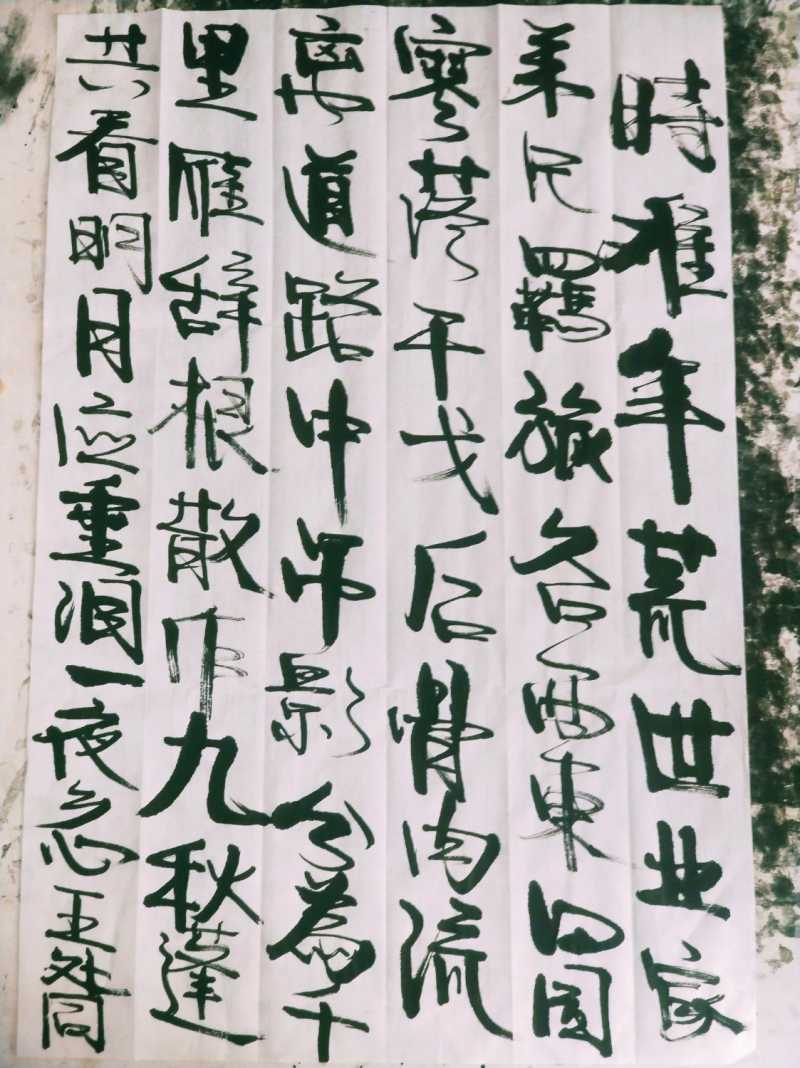 時难年荒世业空
弟兄羈旅各西東田園
寥落干戈后骨肉流
离道路中吊影分為千
里雁辞根散作九秋蓬
共看明月应垂泪一夜乡心五處同